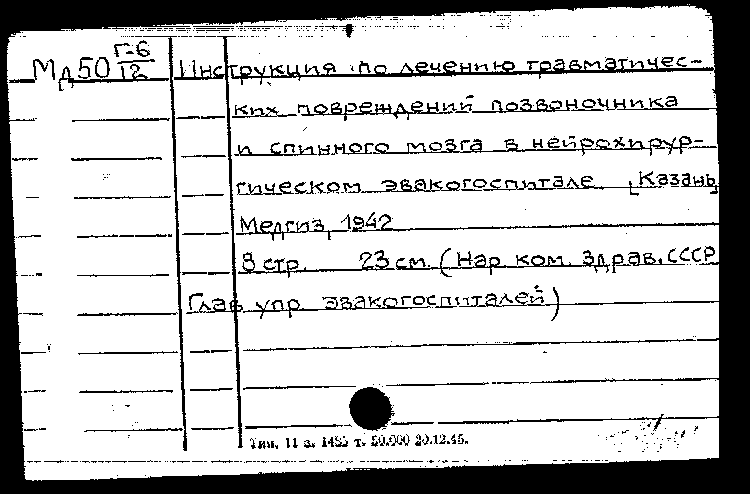 Мд50 Г-6/12 Инструкция по лечению травматичес-
ких повреждений позвоночника
и спинного мозга в нейрохирур-
гическом эвакогоспитале [Казань,
Медгиз, 1942
8 стр. 23 см. (Нар. ком. здрав. СССР
Глав. упр. эвакогоспиталей)
Тип. 11 з. 1485 т. 50.000 20.12.45.